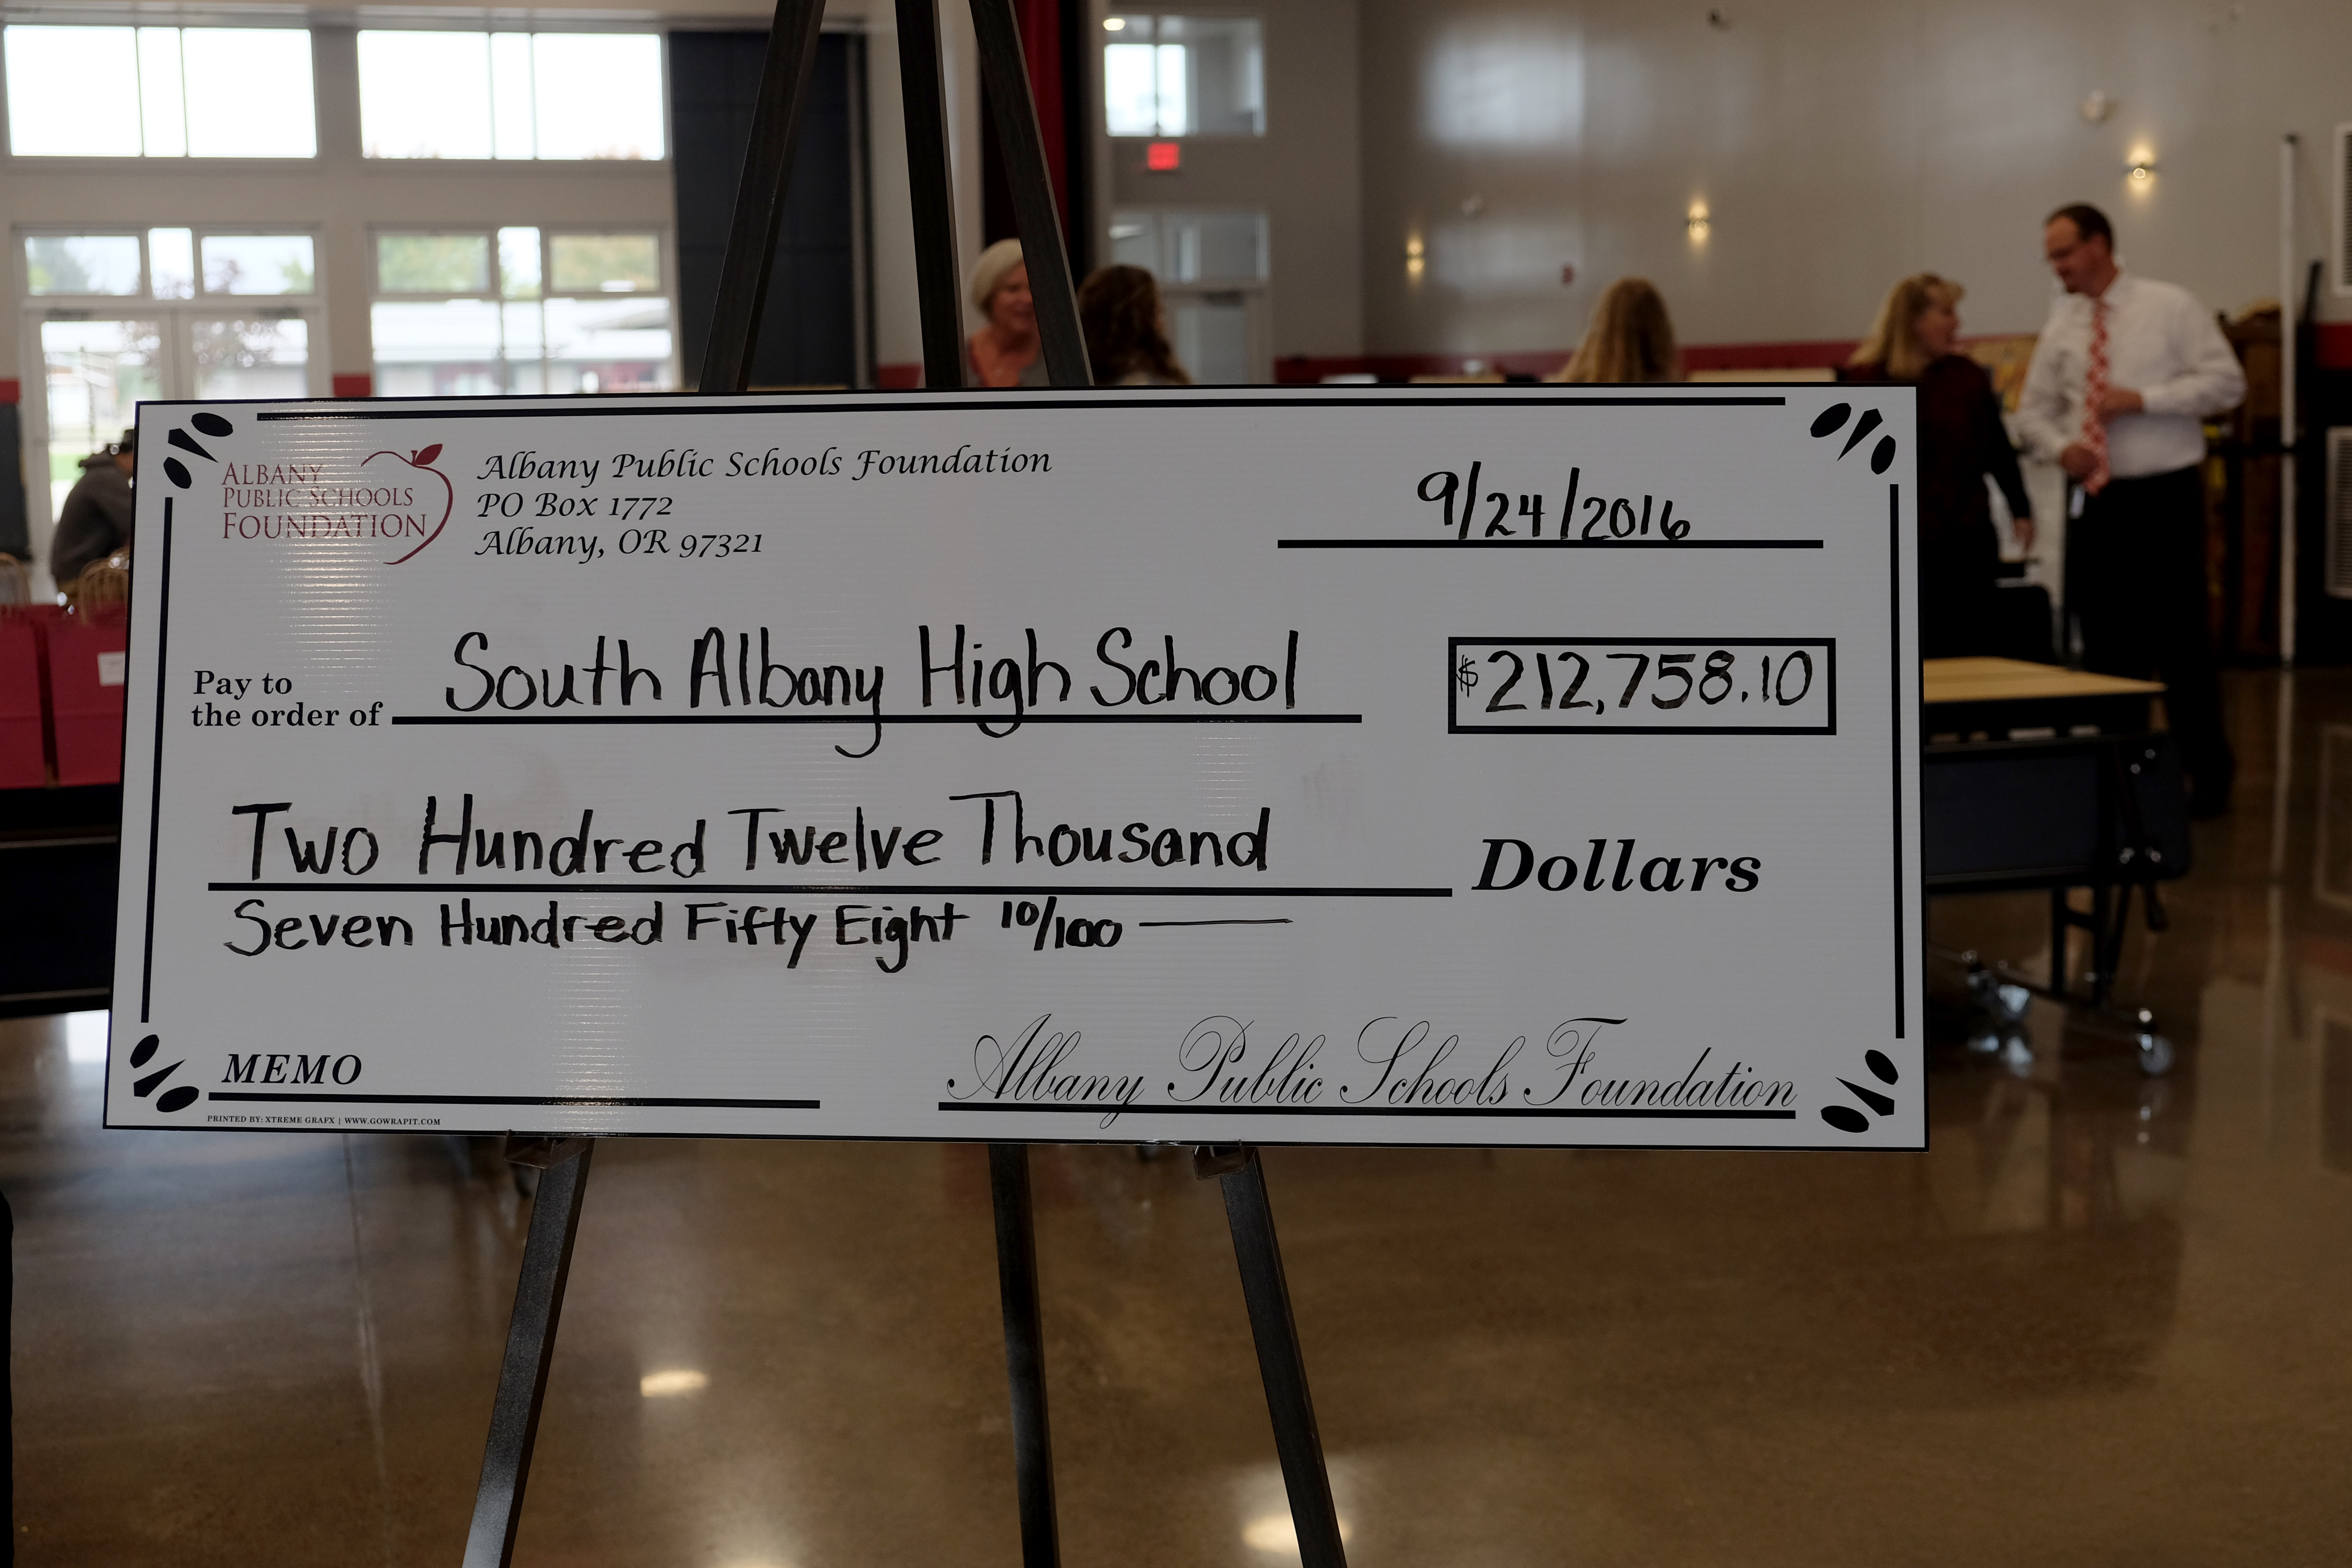 ALBANY
PUBLIC SCHOOLS
FOUNDATION
Albany Public Schools Foundation
PO Box 1772
Albany, OR 97321
9/24/2016
Pay to
the order of
South Albany High School
$212,758.10
Two Hundred Twelve Thousand
Dollars
Seven Hundred Fifty Eight 10/100
MEMO
Albany Public Schools Foundation
PRINTED BY: XTREME GRAFX | WWW.GOWRAPIT.COM